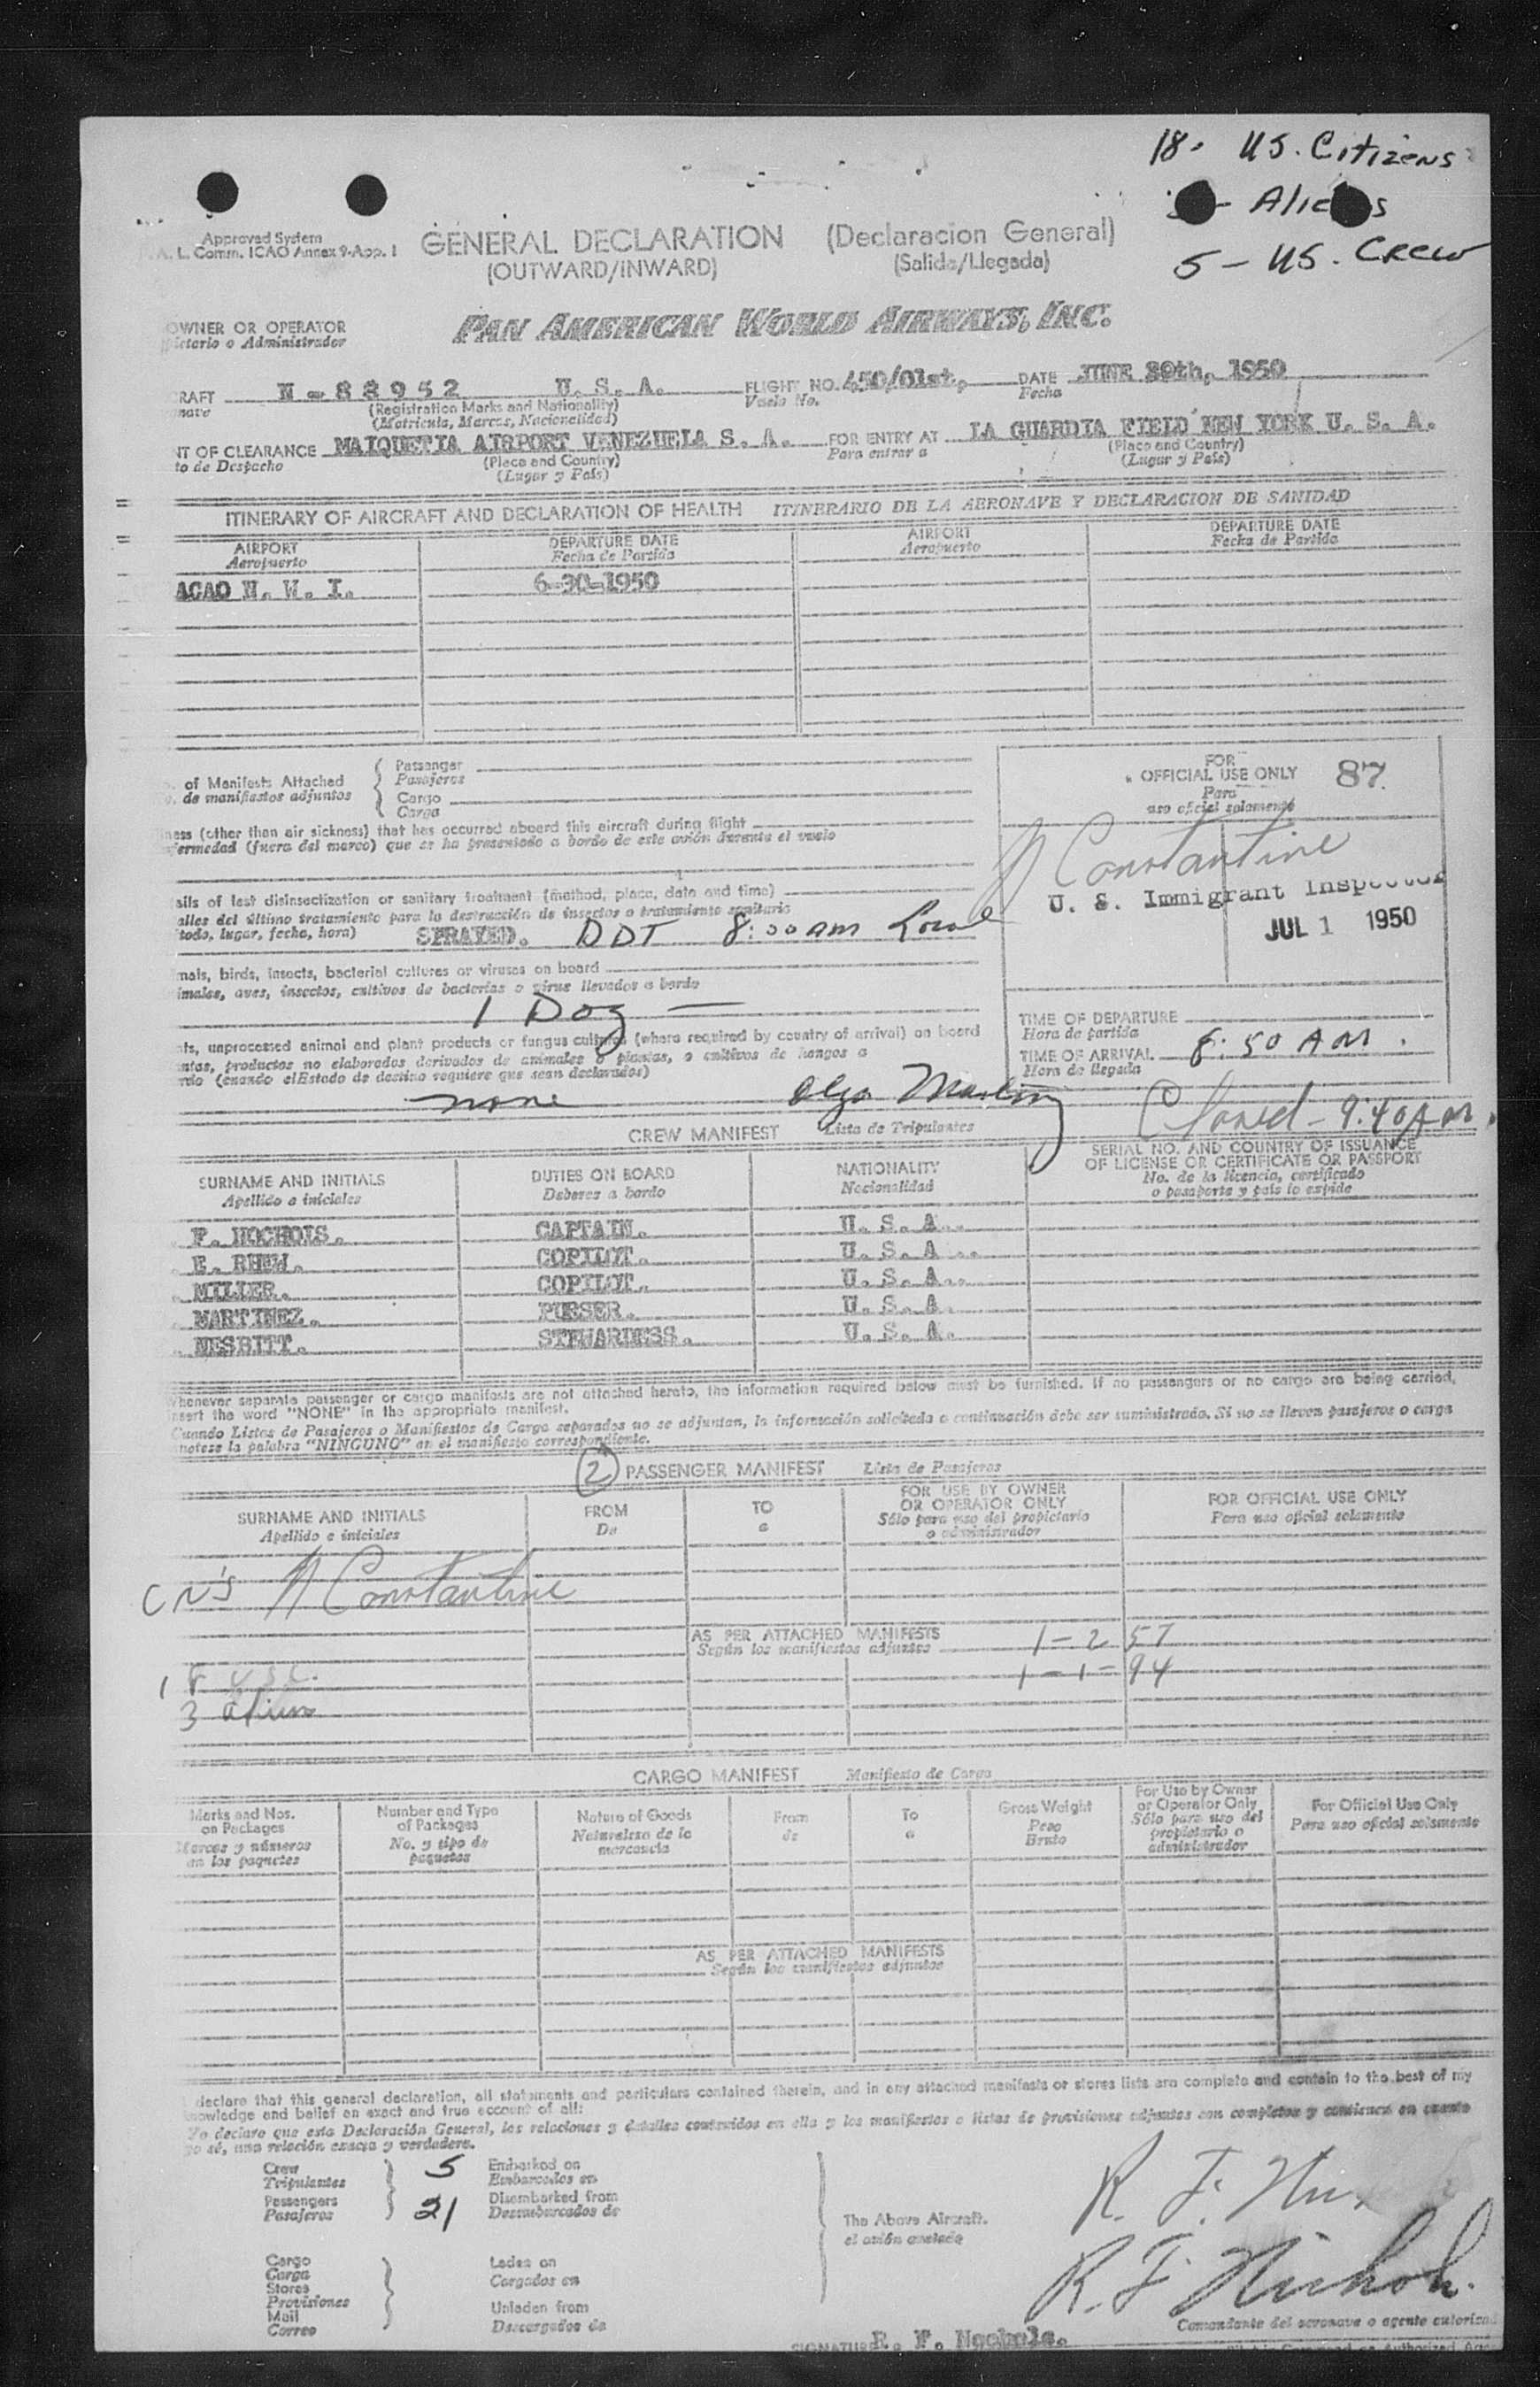 18. US. Citizens
5 - US. Crew
Approved System
A. L. Comm. ICAO Annex 9-App. 1
GENERAL DECLARATION (Declaracion General)
(OUTWARD/INWARD) (Salida/Llegada)
OWNER OR OPERATOR
Administrador
PAN AMERICAN WORLD AIRWAYS, INC.
RAFT N-88952 U. S. A. FLIGHT NO. 450/01st, DATE JUNE 30th, 1950
(Registration Marks and Nationality) Vuelo No. Fecha
(Matricula, Marcas, Nacionalidad)
NT OF CLEARANCE MAIQUETIA AIRPORT VENEZUELA S. A. FOR ENTRY AT LA GUARDIA FIELD NEW YORK U. S. A.
to de Despacho (Place and Country) Para entrar a (Place and Country)
(Lugar y País) (Lugar y País)
ITINERARY OF AIRCRAFT AND DECLARATION OF HEALTH ITINERARIO DE LA AERONAVE Y DECLARACION DE SANIDAD
AIRPORT DEPARTURE DATE AIRPORT DEPARTURE DATE
Aeropuerto Fecha de Partida Aeropuerto Fecha de Partida
ACAO N. W. I. 6-30-1950
of Manifests Attached Passenger
de manifiestos adjuntos Pasajeros
Cargo
Carga
FOR
OFFICIAL USE ONLY 87
Para
uso oficial solamente
ness (other than air sickness) that has occurred aboard this aircraft during flight
fermedad (fuera del mareo) que se ha presentado a bordo de este avión durante el vuelo
Constantine
U. S. Immigrant Inspector
JUL 1 1950
ails of last disinsectization or sanitary treatment (method, place, date and time)
alles del último tratamiento para la destrucción de insectos o tratamiento sanitario
todo, lugar, fecha, hora) SPRAYED. DDT 8:00 AM Local
mals, birds, insects, bacterial cultures or viruses on board
imales, aves, insectos, cultivos de bacterias o virus llevados a bordo
1 Dog —
TIME OF DEPARTURE
Hora de partida
TIME OF ARRIVAL 8:50 AM.
Hora de llegada
nts, unprocessed animal and plant products or fungus cultures (where required by country of arrival) on board
ntas, productos no elaborados derivados de animales o plantas, o cultivos de hongos a
rdo (cuando el Estado de destino requiere que sean declarados)
none Olga 9:40 AM.
CREW MANIFEST Lista de Tripulantes
SURNAME AND INITIALS DUTIES ON BOARD NATIONALITY SERIAL NO. AND COUNTRY OF ISSUANCE
OF LICENSE OR CERTIFICATE OR PASSPORT
Apellido e iniciales Deberes a bordo Nacionalidad No. de la licencia, certificado
o pasaporte y país lo expide
CAPTAIN. U. S. A.
E. RHEW. COPILOT. U. S. A..
MILLER. COPILOT. U. S. A..
MARTINEZ. PURSER. U. S. A.
NESBITT. STEWARDESS. U. S. A.
Whenever separate passenger or cargo manifests are not attached hereto, the information required below must be furnished. If no passengers or no cargo are being carried,
insert the word "NONE" in the appropriate manifest.
Cuando Listas de Pasajeros o Manifiestos de Carga separados no se adjuntan, la información solicitada a continuación debe ser suministrada. Si no se llevan pasajeros o carga
anotese la palabra "NINGUNO" en el manifiesto correspondiente.
2 PASSENGER MANIFEST Lista de Pasajeros
SURNAME AND INITIALS FROM TO FOR USE BY OWNER
OR OPERATOR ONLY FOR OFFICIAL USE ONLY
Apellido e iniciales De a Sólo para uso del propietario
o administrador Para uso oficial solamente
Constantine
AS PER ATTACHED MANIFESTS 1-2 57
Según los manifiestos adjuntos
1-1-94
18 USC.
3 alien
CARGO MANIFEST Manifiesto de Carga
Marks and Nos.
on Packages
Marcas y números
en los paquetes
Number and Type
of Packages
No. y tipo de
paquetes
Nature of Goods
Naturaleza de la
mercancia
From
de
To
a
Gross Weight
Peso
Bruto
For Use by Owner
or Operator Only
Sólo para uso del
propietario o
administrador
For Official Use Only
Para uso oficial solamente
AS PER ATTACHED MANIFESTS
Según los manifiestos adjuntos
declare that this general declaration, all statements and particulars contained therein, and in any attached manifests or stores lists are complete and contain to the best of my
knowledge and belief an exact and true account of all:
Yo declaro que esta Declaración General, las relaciones y detalles contenidos en ella y los manifiestos o listas de provisiones adjuntas son completos y contienen en cuanto
yo sé, una relación exacta y verdadera.
Crew 5 Embarked on
Tripulantes Embarcados en
Passengers 21 Disembarked from
Pasajeros Desembarcados de
The Above Aircraft.
el avión anotado
Cargo Laden on
Carga Cargados en
Stores
Provisiones Unladen from
Mail Descargados de
Correo
R. F.
R. F. Nichols.
Comandante del aeronave o agente autorizad
SIGNATURE R. F. Nochols.